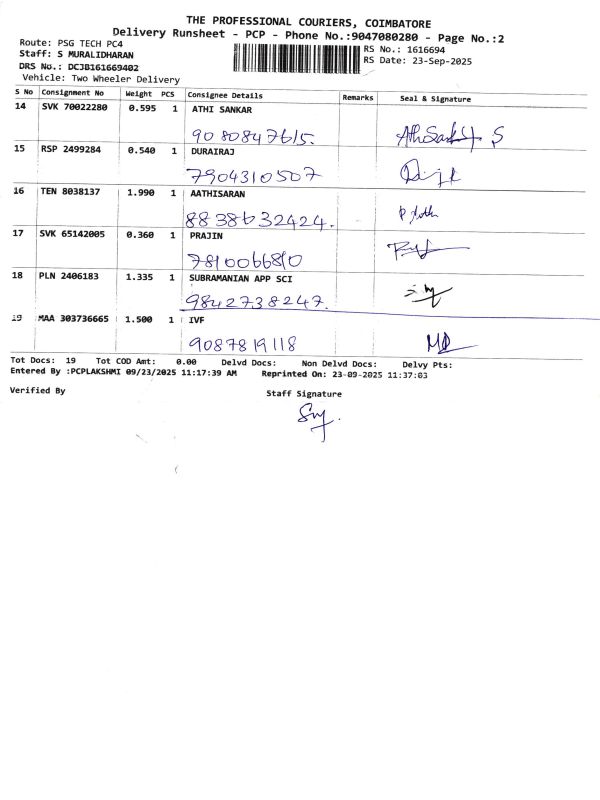 THE PROFESSIONAL COURIERS, COIMBATORE
Delivery Runsheet - PCP - Phone No.:9047080280 - Page No.:2
Route: PSG TECH PC4
Staff: S MURALIDHARAN
RS No.: 1616694
DRS No.: DCJB161669402
RS Date: 23-Sep-2025
Vehicle: Two Wheeler Delivery
S No Consignment No Weight PCS Consignee Details Remarks Seal & Signature
14 SVK 70022280 0.595 1 ATHI SANKAR
9080847615.
15 RSP 2499284 0.540 1 DURAIRAJ
7904310507
16 TEN 8038137 1.990 1 AATHISARAN
8838632424.
17 SVK 65142005 0.360 1 PRAJIN
7810066810
18 PLN 2406183 1.335 1 SUBRAMANIAN APP SCI
9842738247.
19 MAA 303736665 1.500 1 IVF
9087819118
Tot Docs: 19 Tot COD Amt: 0.00 Delvd Docs: Non Delvd Docs: Delvy Pts:
Entered By :PCPLAKSHMI 09/23/2025 11:17:39 AM Reprinted On: 23-09-2025 11:37:03
Verified By Staff Signature